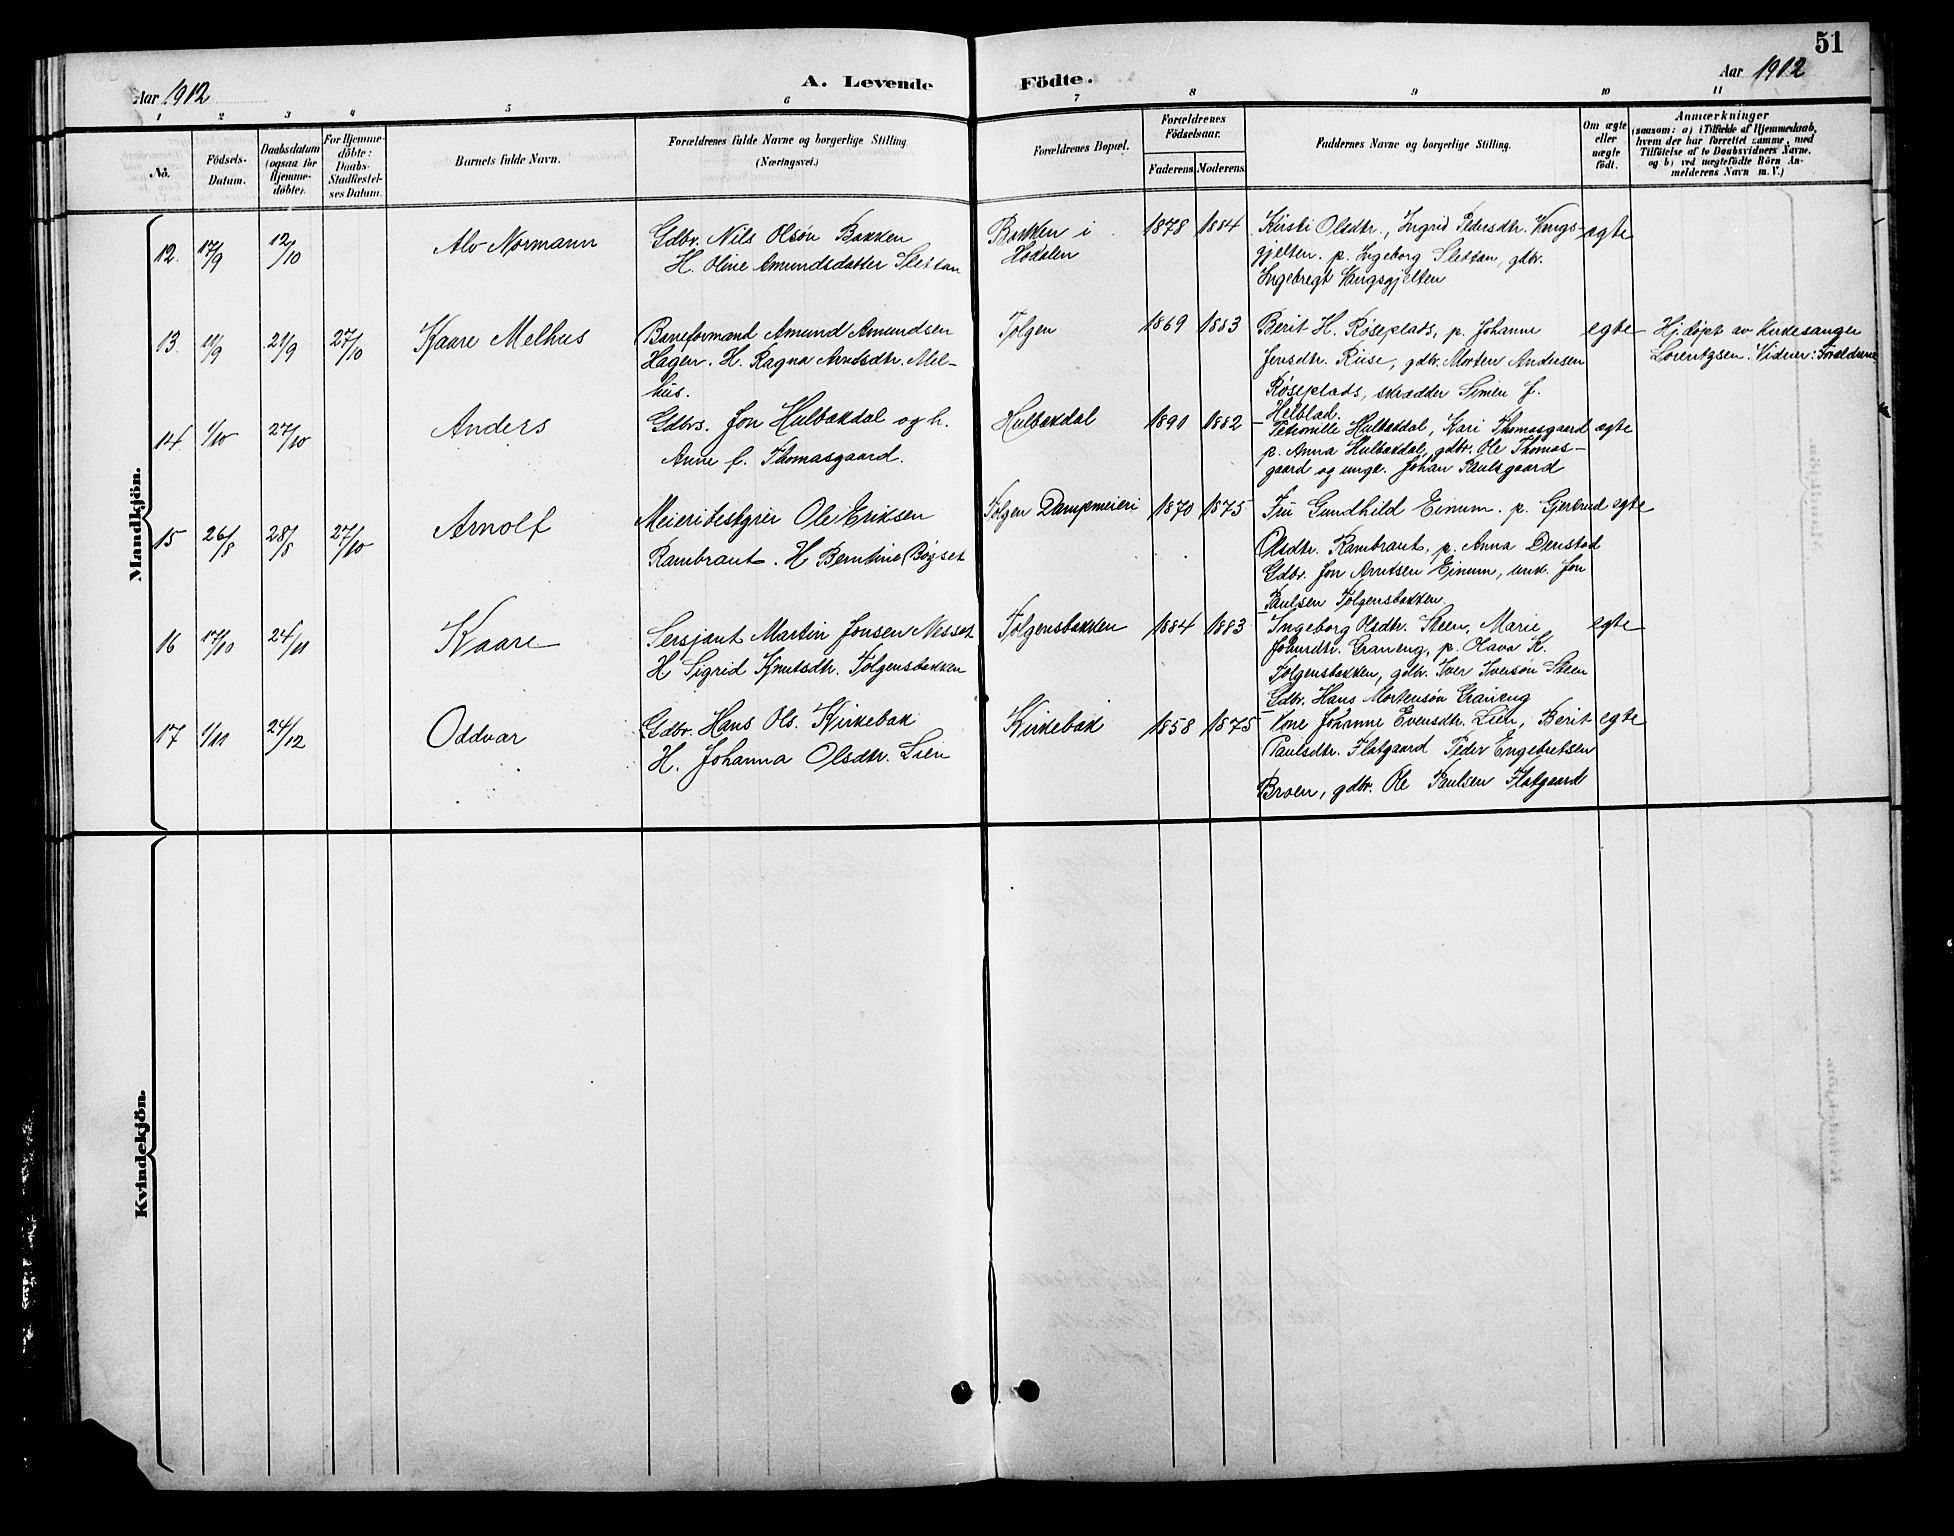 51
Aar 1912
A. Levende Födte.
Aar 1912
1 2 3 4 5 6 7 8 9 10 11
No.
Födsels-
Datum.
Daabsdatum
(ogsaa for
Hjemme-
döbte).
For Hjemme-
döbte:
Daabs-
Stadfæstel-
ses Datum.
Barnets fulde Navn.
Forældrenes fulde Navne og borgerlige Stilling
(Næringsvei.)
Forældrenes Bopæl.
Forældrenes
Födselsaar.
Faderens. Moderens.
Faddernes Navne og borgerlige Stilling.
Om ægte
eller
uægte
født.
Anmærkninger
(saasom: a) i Tilfælde af Hjemmedaab,
hvem der har forrettet samme, med
Tilföielse af to Daabsvidners Navne.
og b) ved uægtefödte Börn An-
melderens Navn m. V.)
Mandkjön.
12. 17/9 12/10 Alv Normann
Gdbr. Nils Olsøn Bakken
H. Oline Amundsdatter Slettan
Bakken i
Hodalen
1878 1884
Kirsti Olsdtr., Ingrid Pedersdtr. Vangs-
gjelten. p. Ingeborg Slettan, gdbr.
Ingebregt Vangsgjelten
egte
13. 11/9 21/9 27/10 Kaare Melhus
Baneformand Amund Amundsen
Hagen. H. Ragna Arntsdtr. Mel-
hus.
Tolgen
1869 1883
Berit H. Røseplads, p. Johanne
Jensdtr. Riise, gdbr. Morten Andersen
Røseplads, skrædder Simen J.
Helblad.
egte
Hj.døpt av Kirkesanger
Lorentzsen. Vidner: Forældrene
14. 1/10 27/10 Anders
Gdbrs. Jon Hulbakdal og h.
Anne f. Thomasgaard.
Hulbakdal
1890 1882
Petronille Hulbakdal, Kari Thomasgaard
p. Anna Hulbakdal, gdbr. Ole Thomas-
gaard og ungk. Johan Paulsgaard
egte
15 26/8 28/8 27/10 Arnolf
Meieribestyrer Ole Eriksen
Rambraut. H Berntine Bøgset
Tolgen Dampmeieri
1870 1875
Fru Gundhild Einum. p. Gjertrud
Olsdtr. Rambraut, p. Anna Denstad
Gdbr. Jon Arntsen Einum, unk. Jon
Paulsen Tolgensbakken.
egte
16 17/10 24/11 Kaare
Sersjant Martin Jonsen Nesset
H Sigrid Knutsdtr. Tolgensbakken
Tolgensbakken
1884 1883
Ingeborg Olsdtr. Steen, Marie
Graneng, p. Olava K.
Tolgensbakken, gdbr. Iver Iversøn Steen
Gdbr. Hans Mortensøn Graneng
egte
17 1/11 24/12 Oddvar
Gdbr. Hans Ols. Kirkebak
H. Johanna Olsdtr. Lien
Kirkebak
1858 1875
Kone Johanne Evensdtr. Lien, Berit
Paulsdtr. Flatgaard Peder Engebretsen
Broen, gdbr. Ole Paulsen Flatgaard
egte
Kvindekjön.